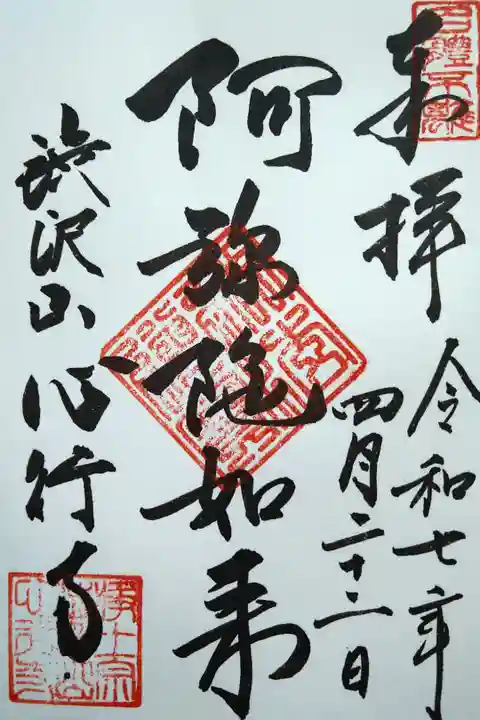 奉拝
令和七年
四月二十二日
阿弥陀如来
沢山心行寺
浄土宗